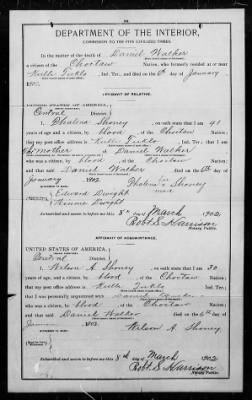 DEPARTMENT OF THE INTERIOR,
COMMISSION TO THE FIVE CIVILIZED TRIBES.
In the matter of the death of Daniel Walker
a citizen of the Choctaw Nation, who formerly resided at or near
Kullituklo, Ind. Ter., and died on the 6th day of January
AFFIDAVIT OF RELATIVE.
UNITED STATES OF AMERICA,
Central
I, Phalena Shoney, on oath state that I am 41
years of age and a citizen, by blood of the Choctaw Nation;
that my post office address is Kulli Tuklo, Ind. Ter.; that I am
mother of Daniel Walker
who was a citizen, by blood, of the Choctaw Nation
and that said Daniel Walker died on the 6th day of
January
Phalena Shoney
Edward Dwight
Dwight
Subscribed and sworn to before me this 8 day of March 1902
Robt. S. Harrison
Notary Public.
AFFIDAVIT OF ACQUAINTANCE.
UNITED STATES OF AMERICA,
Central
I, Wilson A. Shoney, on oath state that I am 30
years of age, and a citizen by blood of the Choctaw Nation;
that my post office address is Kulli Tuklo, Ind. Ter.;
that I was personally acquainted with Daniel Walker
who was a citizen, by blood, of the Choctaw Nation;
and that said Daniel Walker died on the 6th day of
Wilson A. Shoney
Subscribed and sworn to before me this 8th day of March 1902
Robt. S. Harrison
Notary Public.